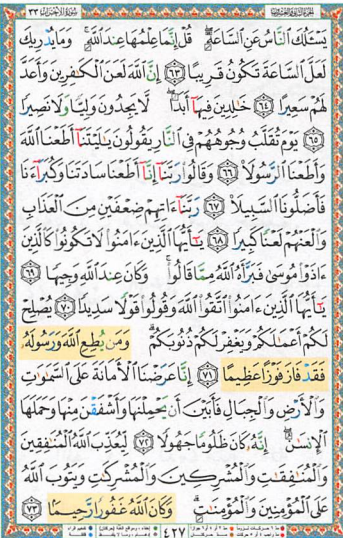 سورة الأحزاب ٣٣
يَسْـَٔلُكَ ٱلنَّاسُ عَنِ ٱلسَّاعَةِۖ قُلْ إِنَّمَا عِلْمُهَا عِندَ ٱللَّهِۚ وَمَا يُدْرِيكَ
لَعَلَّ ٱلسَّاعَةَ تَكُونُ قَرِيبًا ٦٣ إِنَّ ٱللَّهَ لَعَنَ ٱلْكَٰفِرِينَ وَأَعَدَّ
لَهُمْ سَعِيرًا ٦٤ خَٰلِدِينَ فِيهَآ أَبَدًاۖ لَّا يَجِدُونَ وَلِيًّا وَلَا نَصِيرًا
٦٥ يَوْمَ تُقَلَّبُ وُجُوهُهُمْ فِى ٱلنَّارِ يَقُولُونَ يَٰلَيْتَنَآ أَطَعْنَا ٱللَّهَ
وَأَطَعْنَا ٱلرَّسُولَا۠ ٦٦ وَقَالُوا۟ رَبَّنَآ إِنَّآ أَطَعْنَا سَادَتَنَا وَكُبَرَآءَنَا
فَأَضَلُّونَا ٱلسَّبِيلَا۠ ٦٧ رَبَّنَآ ءَاتِهِمْ ضِعْفَيْنِ مِنَ ٱلْعَذَابِ
وَٱلْعَنْهُمْ لَعْنًا كَبِيرًا ٦٨ يَٰٓأَيُّهَا ٱلَّذِينَ ءَامَنُوا۟ لَا تَكُونُوا۟ كَٱلَّذِينَ
ءَاذَوْا۟ مُوسَىٰ فَبَرَّأَهُ ٱللَّهُ مِمَّا قَالُوا۟ۚ وَكَانَ عِندَ ٱللَّهِ وَجِيهًا ٦٩
يَٰٓأَيُّهَا ٱلَّذِينَ ءَامَنُوا۟ ٱتَّقُوا۟ ٱللَّهَ وَقُولُوا۟ قَوْلًا سَدِيدًا ٧٠ يُصْلِحْ
لَكُمْ أَعْمَٰلَكُمْ وَيَغْفِرْ لَكُمْ ذُنُوبَكُمْۗ وَمَن يُطِعِ ٱللَّهَ وَرَسُولَهُۥ
فَقَدْ فَازَ فَوْزًا عَظِيمًا ٧١ إِنَّا عَرَضْنَا ٱلْأَمَانَةَ عَلَى ٱلسَّمَٰوَٰتِ
وَٱلْأَرْضِ وَٱلْجِبَالِ فَأَبَيْنَ أَن يَحْمِلْنَهَا وَأَشْفَقْنَ مِنْهَا وَحَمَلَهَا
ٱلْإِنسَٰنُۖ إِنَّهُۥ كَانَ ظَلُومًا جَهُولًا ٧٢ لِّيُعَذِّبَ ٱللَّهُ ٱلْمُنَٰفِقِينَ
وَٱلْمُنَٰفِقَٰتِ وَٱلْمُشْرِكِينَ وَٱلْمُشْرِكَٰتِ وَيَتُوبَ ٱللَّهُ
عَلَى ٱلْمُؤْمِنِينَ وَٱلْمُؤْمِنَٰتِۗ وَكَانَ ٱللَّهُ غَفُورًا رَّحِيمًۢا ٧٣
٤٢٧